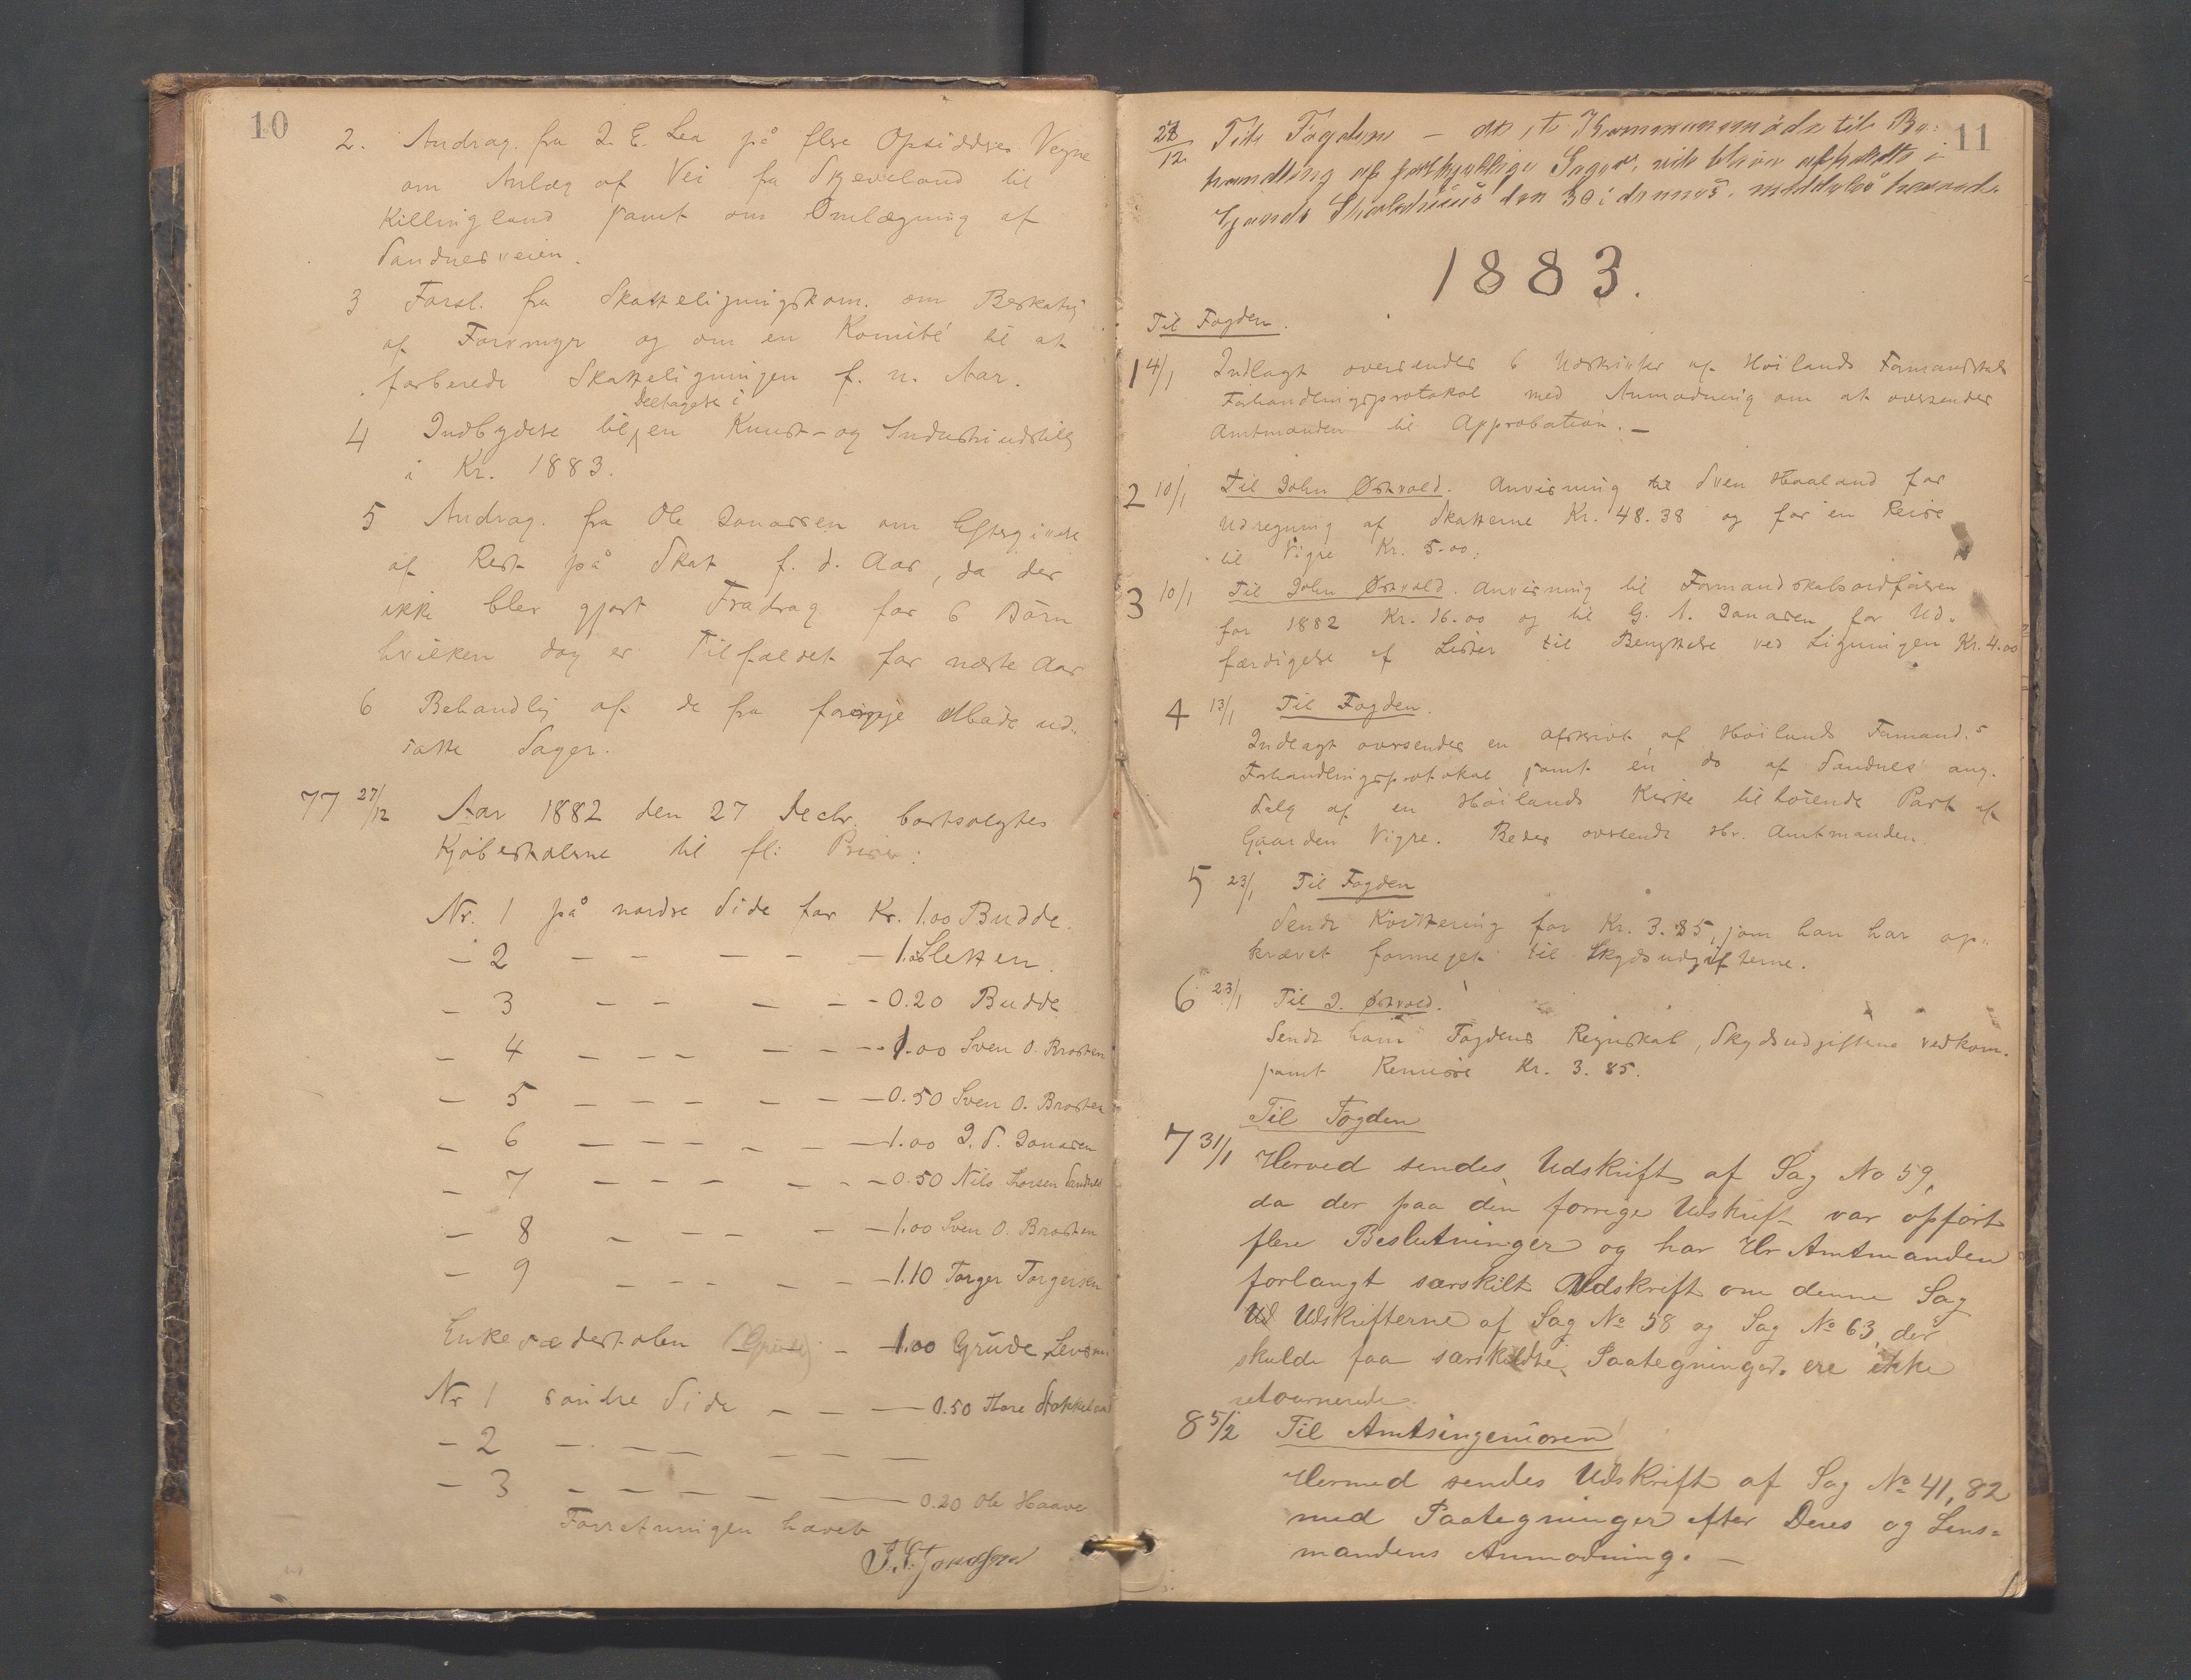 10
2. Andrag. fra I. E. Lea på flere Opsidderes Vegne
om Anlæg af Vei fra Skjeveland til
Killingland samt om Omlægning af
Sandnesveien.
3 Forsl. fra Skatteligningskom. om Beskatng
af Formyr og om en Komite til at
forberede Skatteligningen f. n. Aar.
Deeltagelse i
4 Indbydelse til en Kunst- og Industriudstillg
i Kr. 1883.
5 Andrag. fra Ole Jonassen om Eftergivelse
af Rest på Skat f. d. Aar, da der
ikke blev gjort Fradrag for 6 Børn
hvilken dog er Tilfældet for næste Aar
6 Behandlg af de fra forrige Møde ud-
satte Sager.
77 27/12 Aar 1882 den 27 Decbr. bortsolgtes
Kjøbestolene til fl: Priser:
Nr. 1 på nordre Side for Kr. 1.00 Budde.
— 2 — — — — — 1.00 Sletten.
— 3 — — — — — 0.20 Budde
— 4 — — — — — — 1.00 Sven O. Brosten
— 5 — — — — — — 0.50 Sven O. Brosten
— 6 — — — — — — 1.00 I. S. Jonasen
— 7 — — — — — — 0.50 Nils Thorsen Sandnes
— 8 — — — — — 1.00 Sven O. Brosten
— 9 — — — — — — 1.10 Torger Torgersen
Enkesædestolen (Grude) — 1.00 Grude
Nr 1 søndre Side — — — 0.50 Tore Stokkeland
— 2 — — — — — —
— 3 — — — — — 0.20 Ole Haave
Forretningen hævet
11
28/12 Til Fogden — at et Kommunemøde til Be-
handling af forskjellige Sager, vil blive afholdt i
Skolehuus den 30 i dennes, meddeles herved.
1883.
Til Fogden.
1 4/1 Indlagt oversendes 6 Udskrifter af Høilands Formandskabs
Forhandlingsprotokol med Anmodning om at oversendes
Amtmanden til Approbation. —
2 10/1 Til John Østvold. Anvisning til Sven Haaland for
Udregning af Skatterne Kr. 48.38 og for en Reise
til Vigre Kr. 5.00.
3 10/1 Til John Østvold. Anvisning til Formandskabsordføreren
for 1882 Kr. 16.00 og til G. A. Jonasen for Ud-
færdigelse af Lister til Benyttelse ved Ligningen Kr. 4.00
4 13/1 Til Fogden.
Indlagt oversendes en Afskrivt af Høilands Formand.s
Forhandlingsprotokol samt en do af Sandnes ang.
Salg af en Høilands Kirke tilhørende Part af
Gaarden Vigre. Bedes oversendt Hr. Amtmanden.
5 23/1 Til Fogden
Sendt Kvittering for Kr. 3.85, som han har op-
krævet formeget til Skydsudgifterne.
6 23/1 Til J. Østvold.
Sendt ham Fogdens Regnskab, Skydsudgifterne vedkom.
samt Remisse Kr. 3.85.
Til Fogden
7 31/1 Herved sendes Udskrift af Sag No 59,
da der paa den forrige Udskrift var opført
flere Beslutninger og har Hr Amtmanden
forlangt særskilt Udskrift om denne Sag
Ud Udskrifterne af Sag No 58 og Sag No 63, der
skulde faa særskildte Paategninger. ere ikke
retournerede.
8 5/2 Til Amtsingeniøren
Hermed sendes Udskrift af Sag No 41, 82
med Paategninger efter Deres og Lens-
mandens Anmodning. —